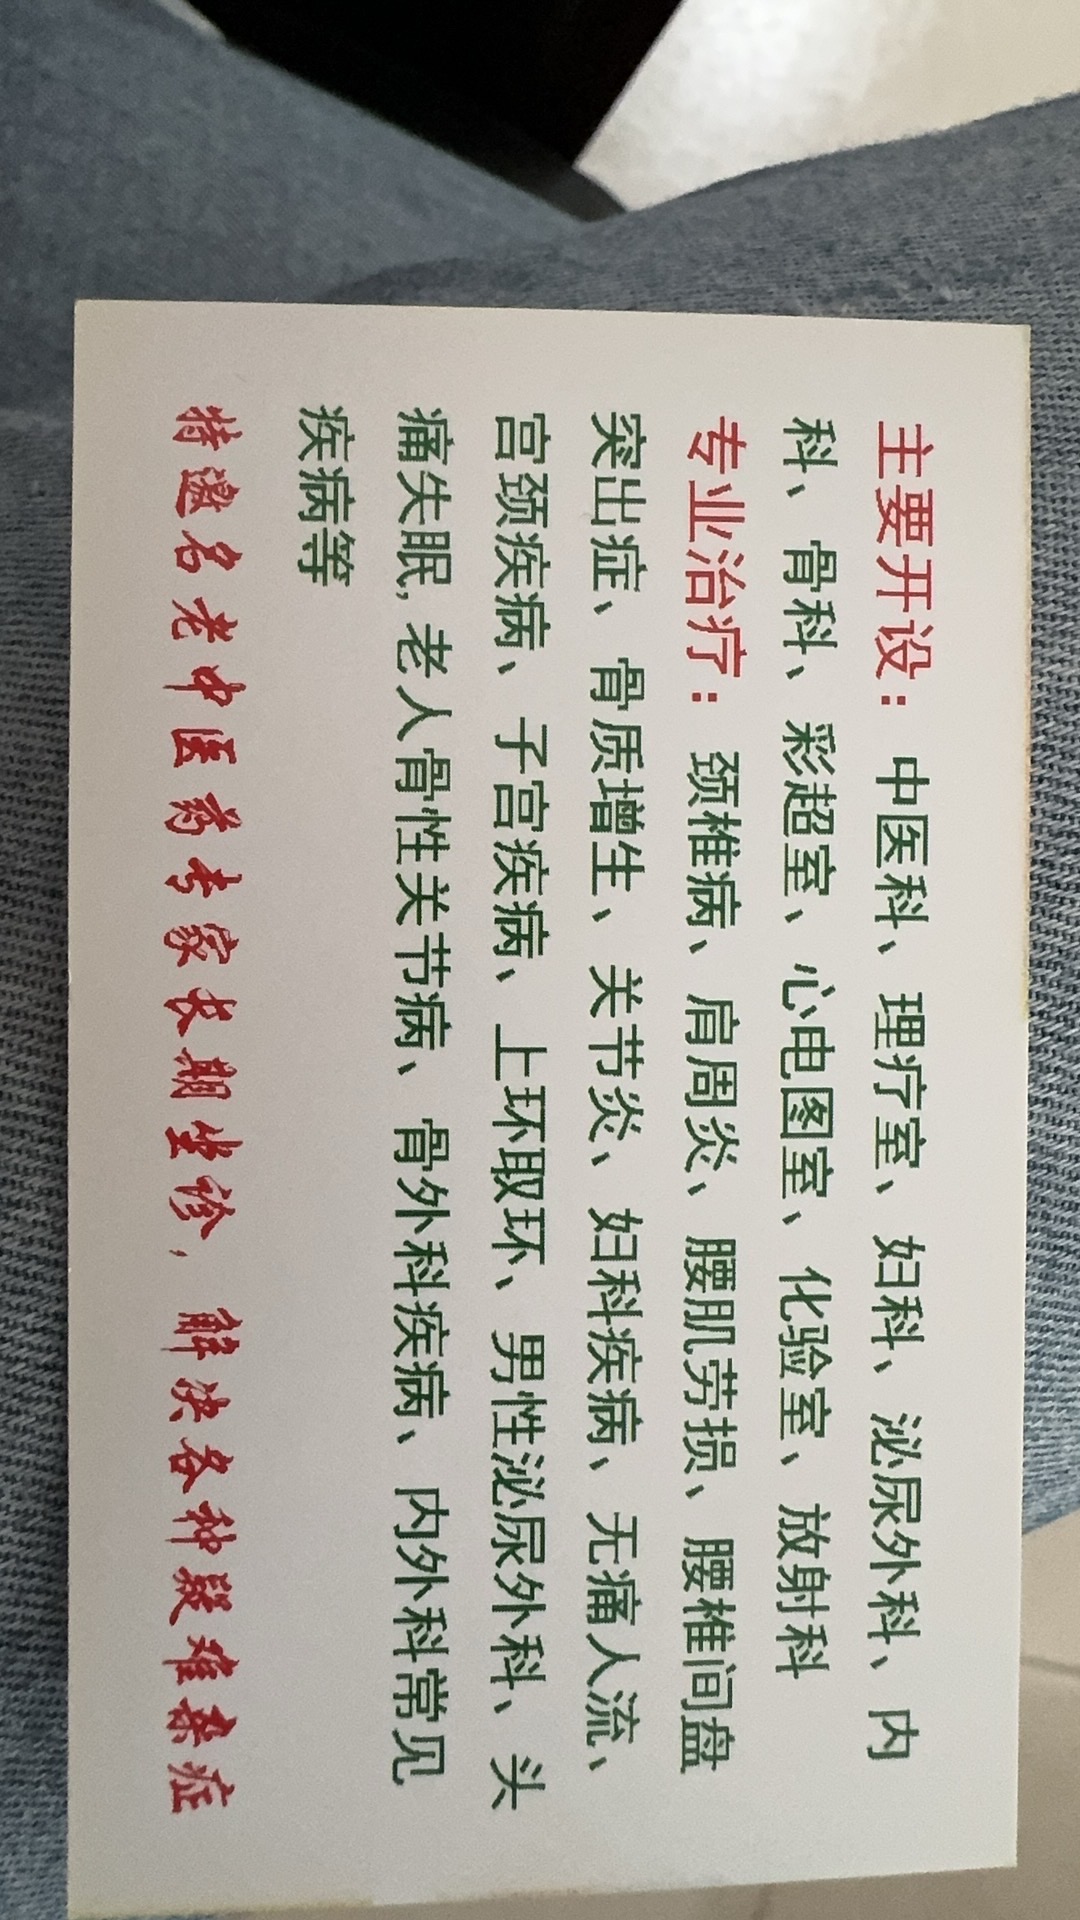 主要开设：中医科、理疗室、妇科、泌尿外科、内
科、骨科、彩超室、心电图室、化验室、放射科
专业治疗：颈椎病、肩周炎、腰肌劳损、腰椎间盘
突出症、骨质增生、关节炎、妇科疾病、无痛人流、
宫颈疾病、子宫疾病、上环取环、男性泌尿外科、头
痛失眠,老人骨性关节病、骨外科疾病、内外科常见
疾病等
特邀名老中医药专家长期坐诊，解决各种疑难杂症